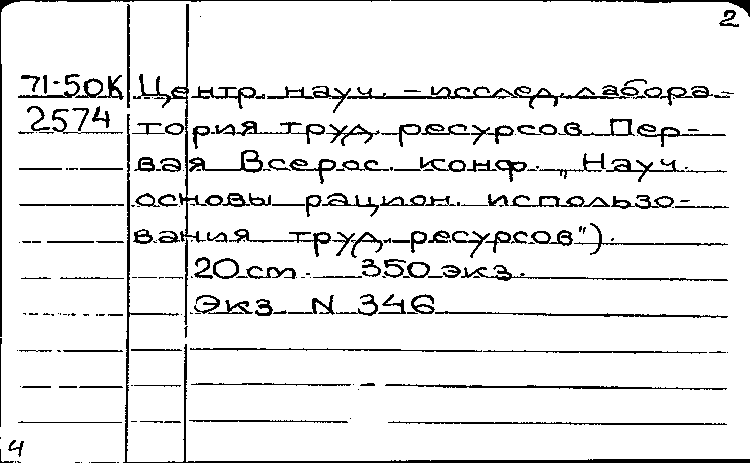 2
71-50К Центр. науч. - исслед. лабора-
2574 тория труд. ресурсов. Пер-
вая Всерос. конф. „Науч.
основы рацион. использо-
вания труд. ресурсов").
20 cm. 350 экз.
Экз. N 346
4